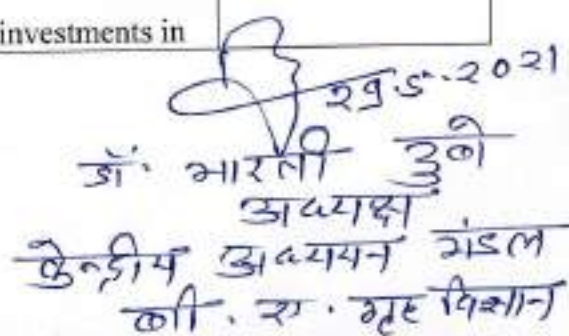 investments in
29.5.2021
डॉ. भारती दुबे
अध्यक्ष
केन्द्रीय अध्ययन मंडल
बी. ए. गृह विज्ञान